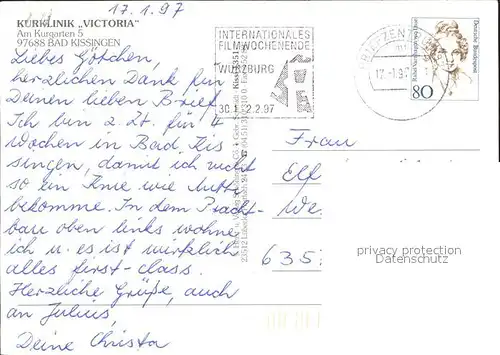 17.1.97
KURKLINIK „VICTORIA"
Am Kurgarten 5
97688 BAD KISSINGEN
Liebes Götchen,
herzlichen Dank für
Deinen lieben Brief.
Ich bin z. Zt. für 4
Wochen in Bad Kis
singen, damit ich nicht
so ein Knie wie Mutti
bekomme. In dem Pracht-
bau oben links wohne
ich u. es ist wirklich
alles first-class.
Herzliche Grüße, auch
an Julius,
Deine Christa
INTERNATIONALES
FILMWOCHENENDE
WÜRZBURG
30.1.-2.2.97
BRIEFZENTRUM
17.-1.97
Deutsche Bundespost
80
Frau
Elf
We
635
privacy protection
Datenschutz